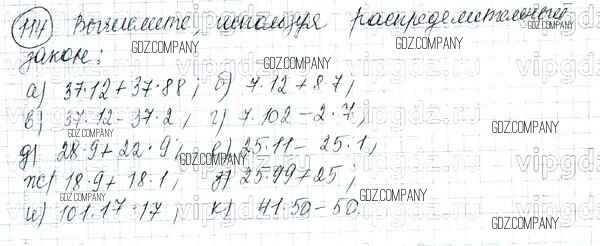 114 Вычислите, используя распределительный
закон:
а) 37·12 + 37·88; б) 7·12 + 8·7;
в) 37·12 - 37·2; г) 7·102 - 2·7;
д) 28·9 + 22·9; е) 25·11 - 25·1;
ж) 18·9 + 18·1; з) 25·99 + 25;
и) 101·17·17; к) 41·50 - 50.
GDZ.COMPANY
GDZ.COMPANY
GDZ.COMPANY
GDZ.COMPANY
GDZ.COMPANY
GDZ.COMPANY
GDZ.COMPANY
GDZ.COMPANY
GDZ.COMPANY
vipgdz.ru